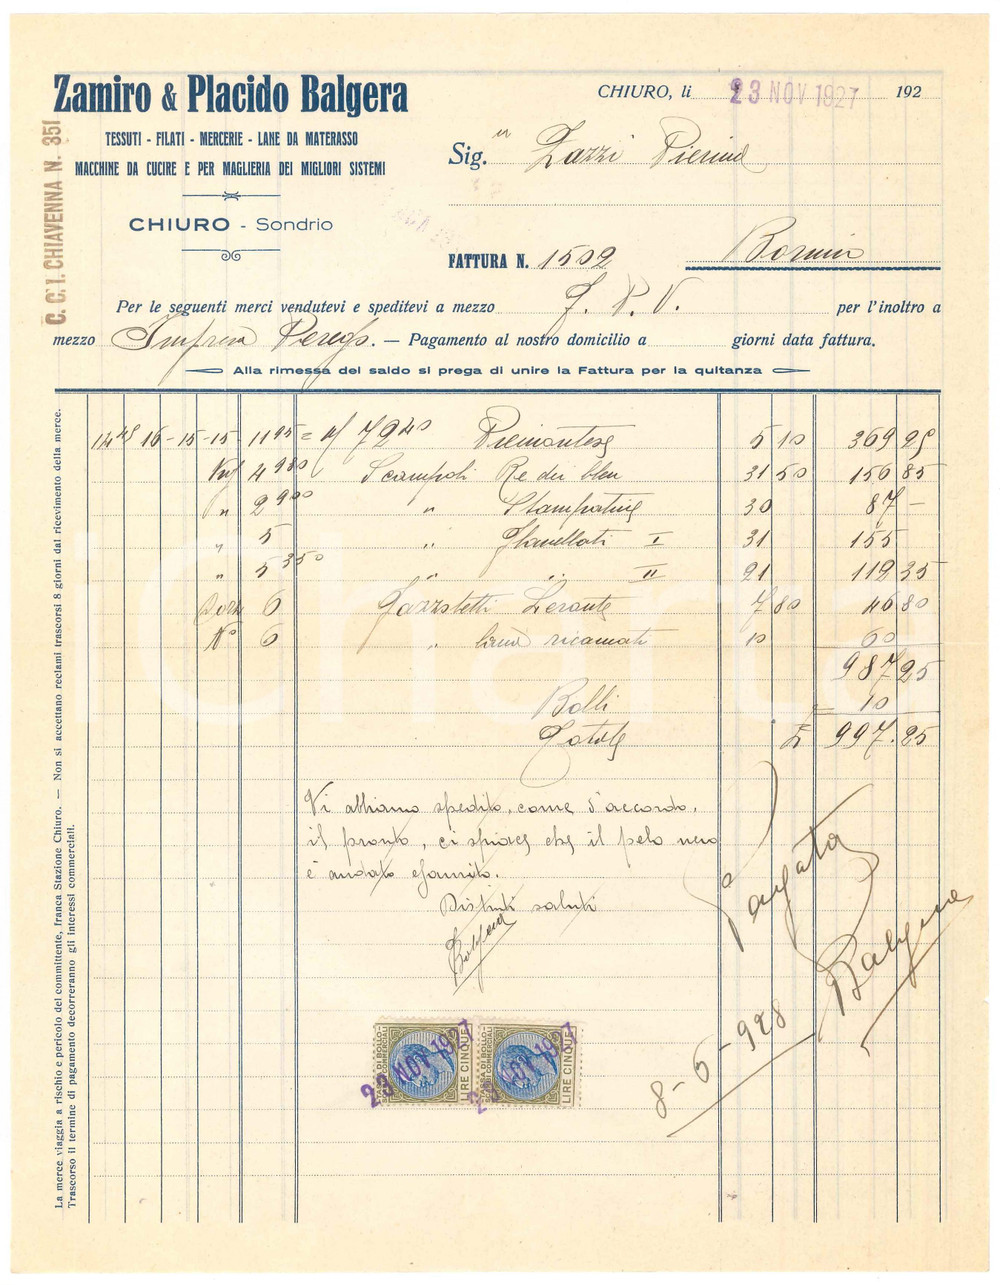 Zamiro & Placido Balgera
TESSUTI - FILATI - MERCERIE - LANE DA MATERASSO
MACCHINE DA CUCIRE E PER MAGLIERIA DEI MIGLIORI SISTEMI
CHIURO - Sondrio
C. C. I. CHIAVENNA N. 351
CHIURO, li 23 NOV 1927 192
Sig.ra Zazzi Pierina
FATTURA N. 1509 Bormio
Per le seguenti merci vendutevi e speditevi a mezzo F. P. V. per l'inoltro a
mezzo Impresa Perego. — Pagamento al nostro domicilio a giorni data fattura.
Alla rimessa del saldo si prega di unire la Fattura per la quitanza
14 45 16 - 15 - 15 - 11 95 = M/ 72 40 Piemontese 5 10 369 25
4 980 Scampoli Re du bleu 31 50 156 85
" 2 900 " Stampatine 30 87 -
" 5 " Flanellati I 31 155
" 5 350 " " II 21 112 35
6 Fazzoletti Levante 7 80 46 80
N° 6 " lana ricamati 10 60
987.25
Bolli 10
Totale £ 997.25
Vi abbiamo spedito, come d'accordo,
il pronto, ci spiace che il pelo nero
è andato esaurito.
Distinti saluti
Balgera
Pagata
Balgera
8-5-928
TASSA DI BOLLO SCAMBI COMMERCIALI LIRE CINQUE
TASSA DI BOLLO SCAMBI COMMERCIALI LIRE CINQUE
23 NOV 1927
23 NOV 1927
La merce viaggia a rischio e pericolo del committente, franca Stazione Chiuro. — Non si accettano reclami trascorsi 8 giorni dal ricevimento della merce.
Trascorso il termine di pagamento decorreranno gli interessi commerciali.
iCharta